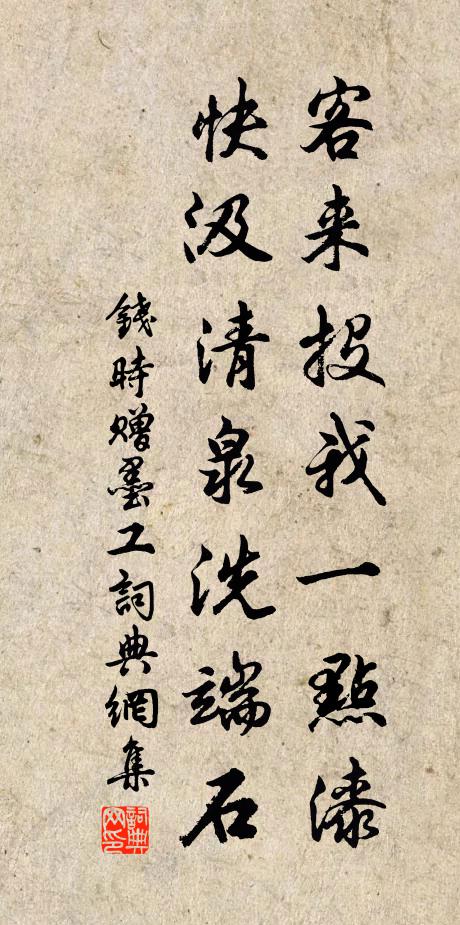 客来投我一點漆
快汲清泉洗端石
錢時贈墨工詞典網集
詞典網印